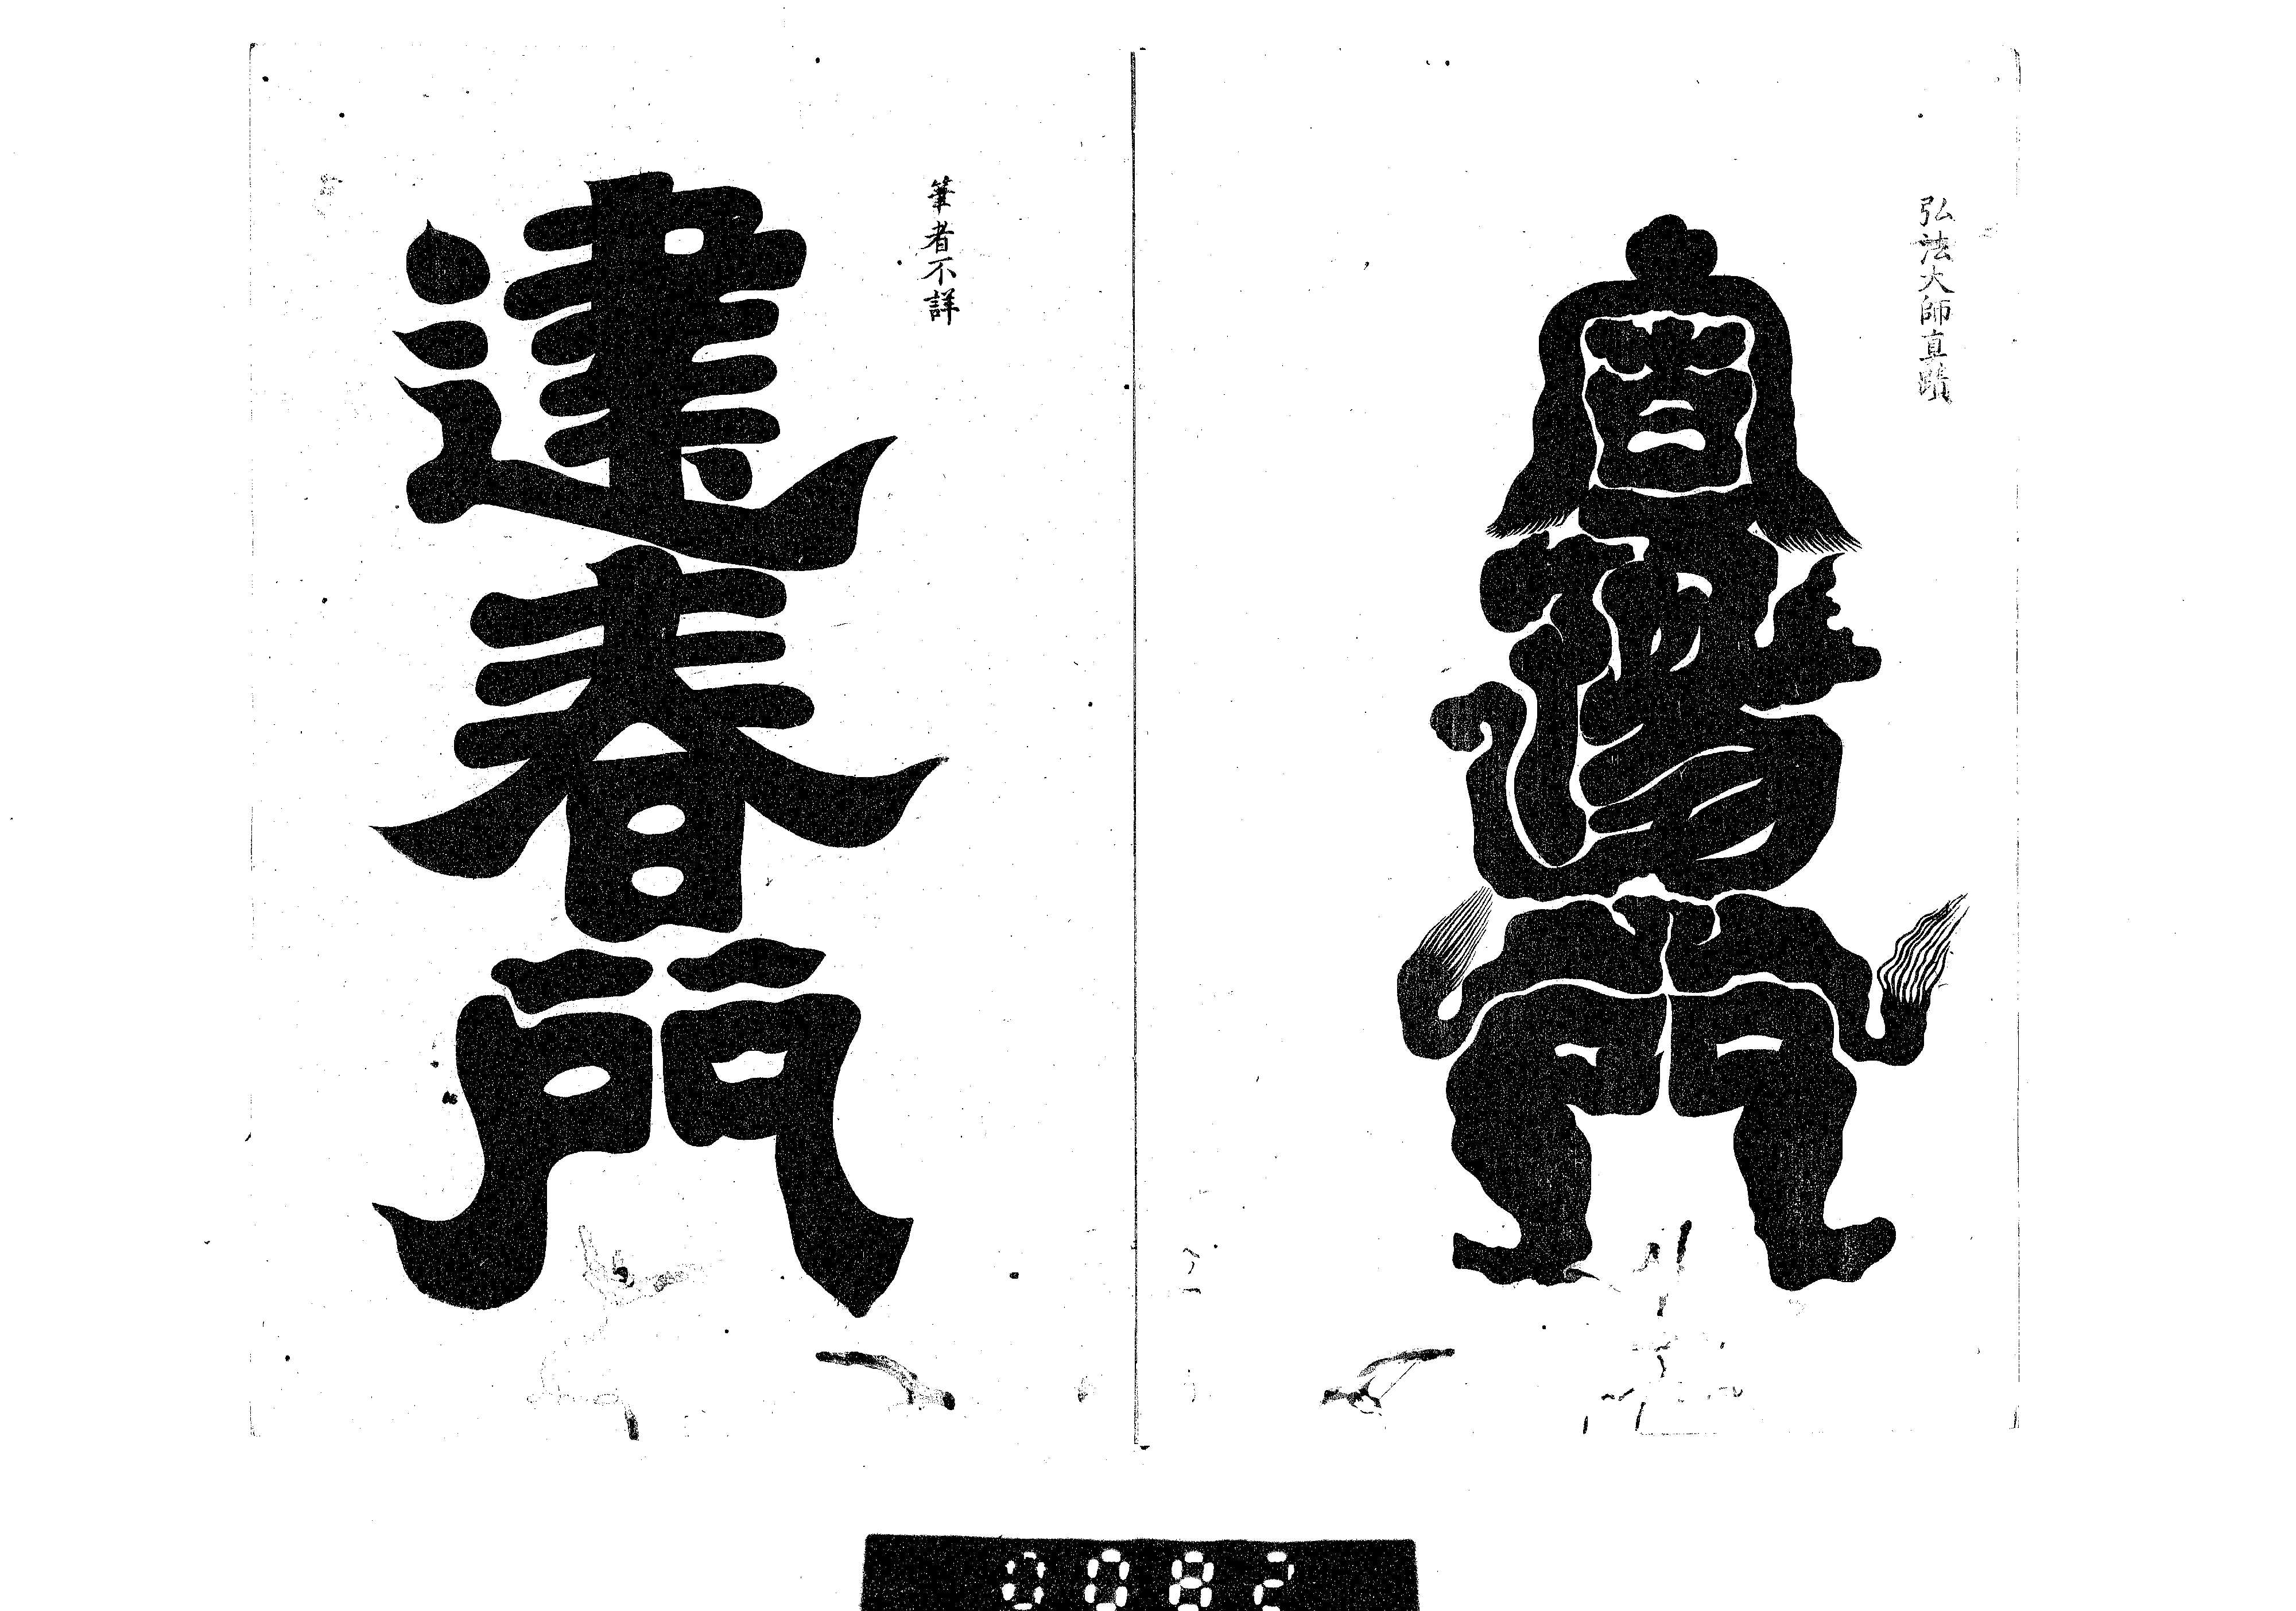 弘法大師真蹟
宣陽門
筆者不詳
建春門
0082